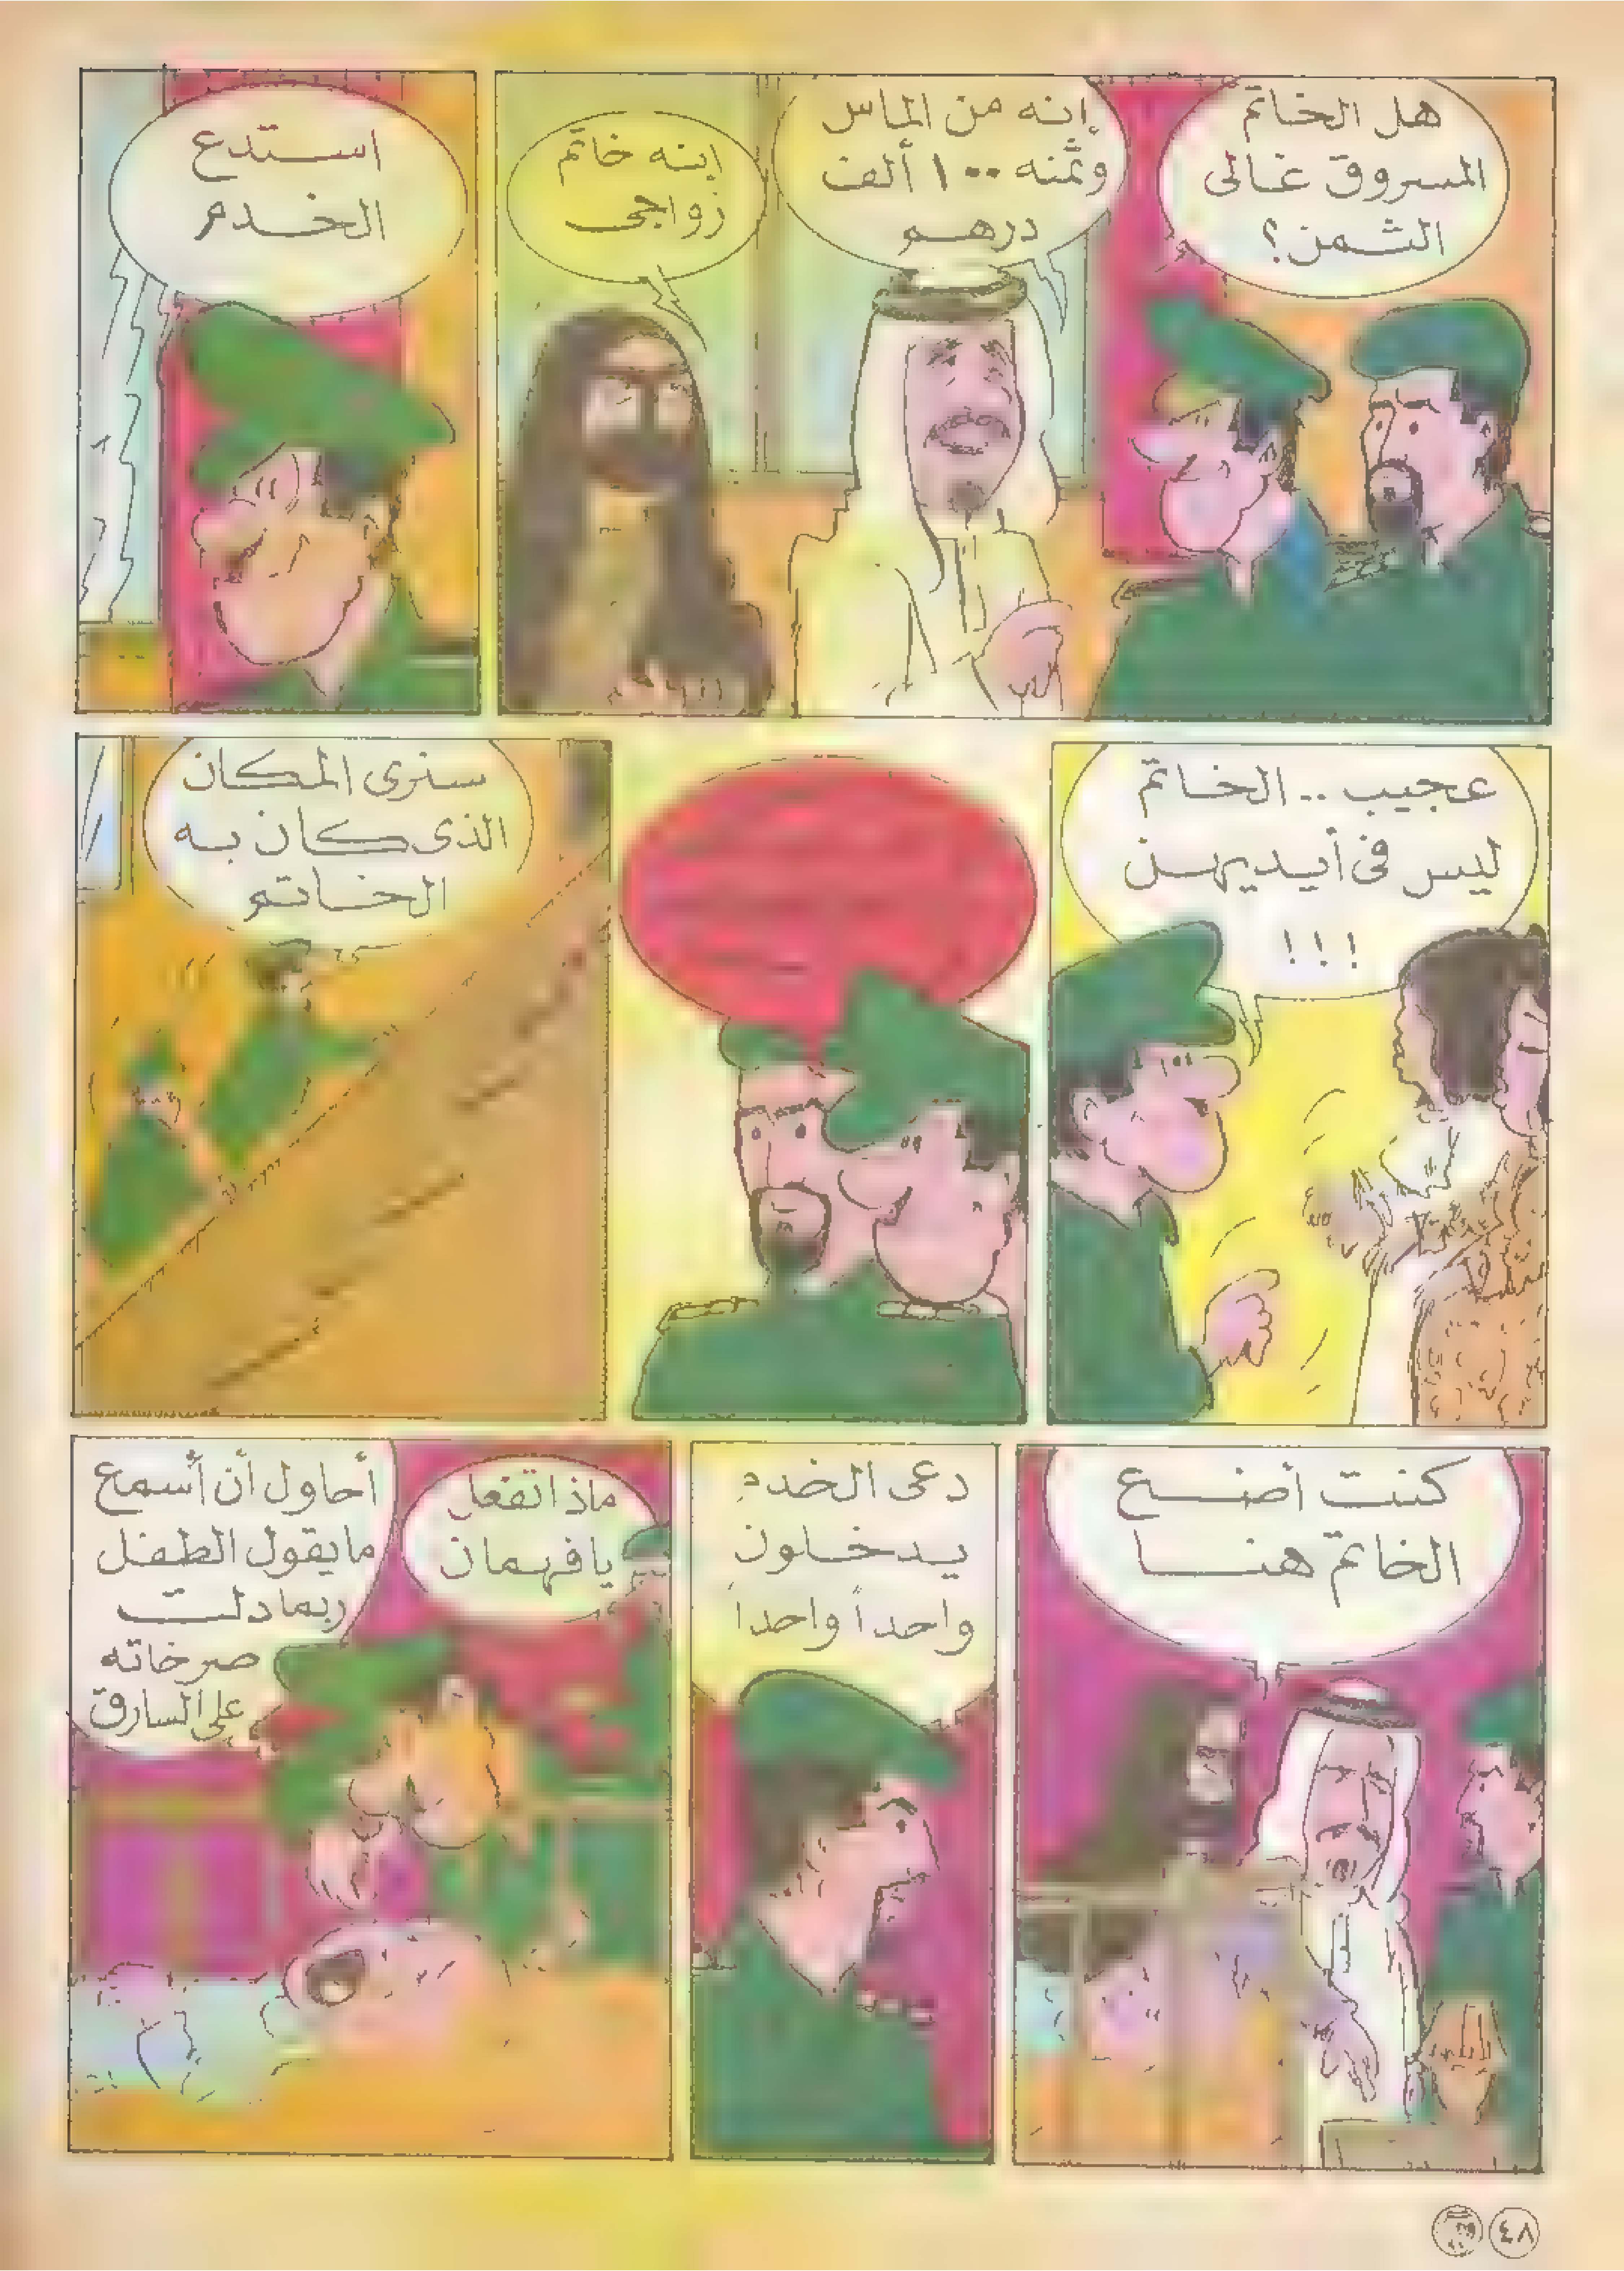 هل الخاتم
المسروق غالى
الثمن؟
إنه من الماس
وثمنه ١٠٠ ألف
درهم
إنه خاتم
زواجى
استدع
الخدم
عجيب .. الخاتم
ليس فى أيديهن
!!!
سنرى المكان
الذى كان به
الخاتم
كنت أضع
الخاتم هنا
دعى الخدم
يدخلون
واحداً واحداً
ماذا تفعل
يا فهمان
أحاول أن أسمع
ما يقول الطفل
ربما دلت
صرخاته
على السارق
٤٨